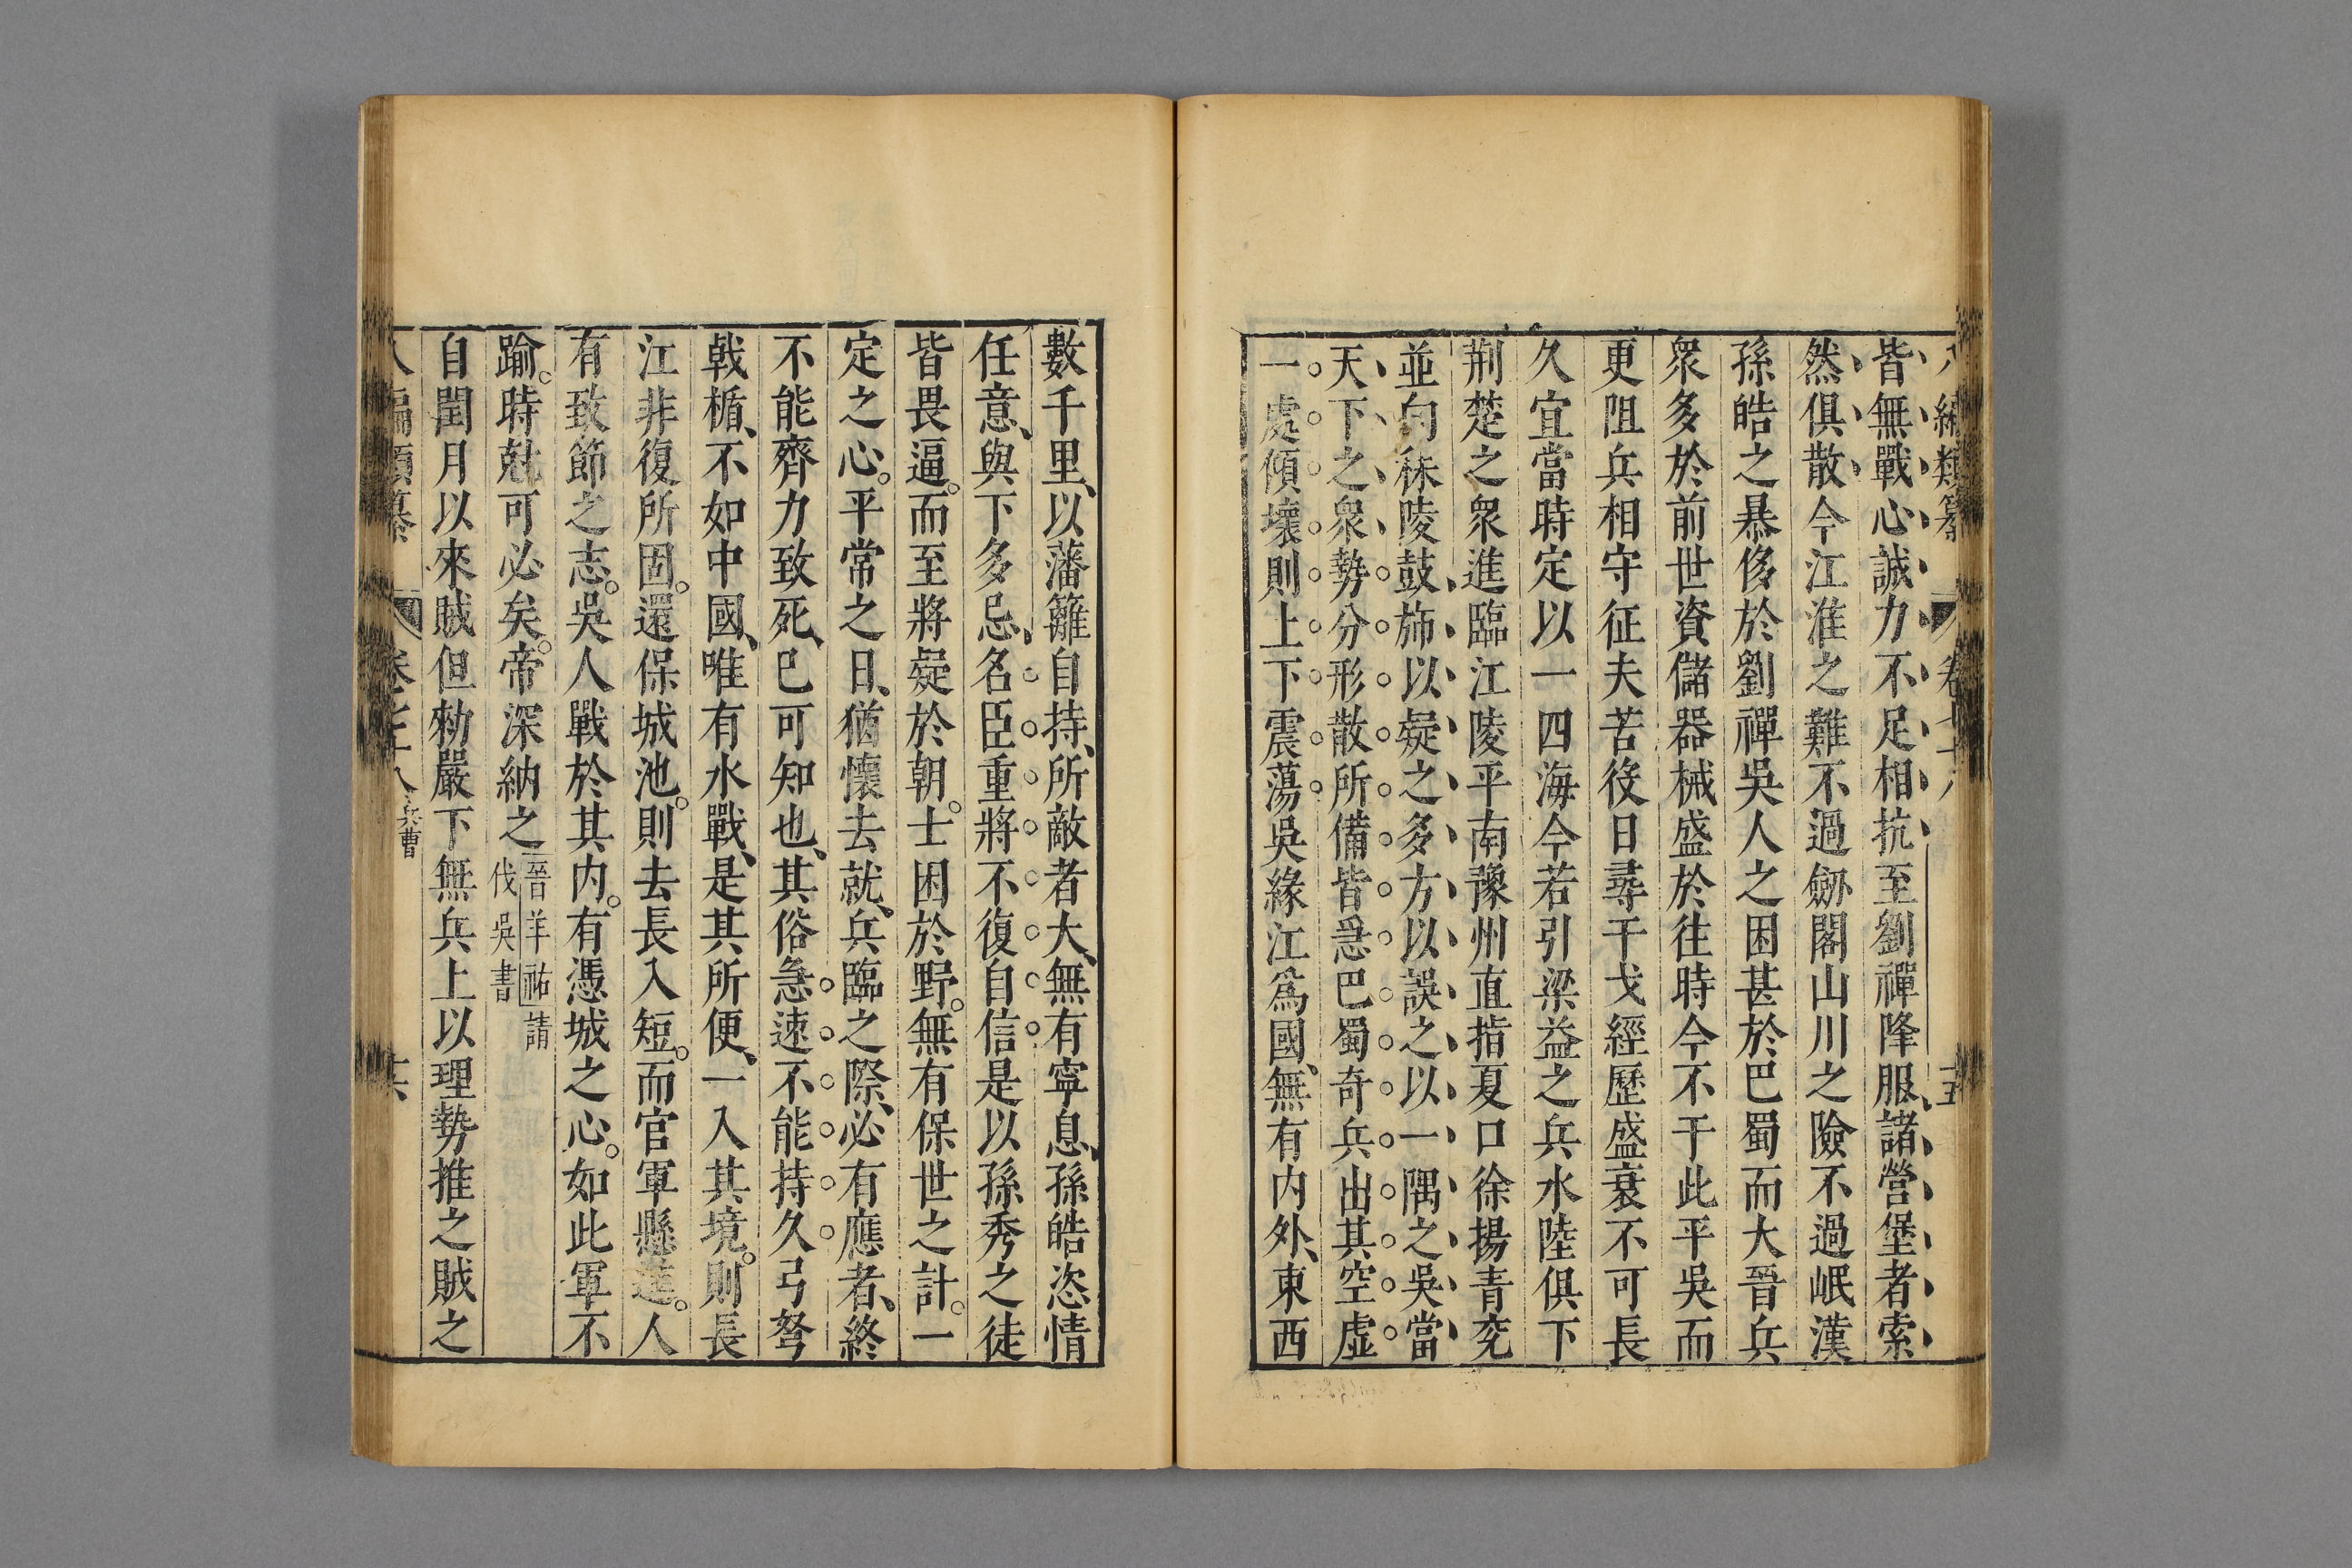 八編類纂 卷七十八 十五
皆無戰心誠力不足相抗至劉禪降服諸營堡者索
然俱散今江淮之難不過劒閣山川之險不過岷漢
孫皓之暴侈於劉禪吳人之困甚於巴蜀而大晉兵
衆多於前世資儲器械盛於往時今不于此平吳而
更阻兵相守征夫苦役日尋干戈經歷盛衰不可長
久宜當時定以一四海今若引梁益之兵水陸俱下
荆楚之衆進臨江陵平南豫州直指夏口徐揚青兖
並向秣陵鼓旆以疑之多方以誤之以一隅之吳當
天下之衆勢分形散所備皆急巴蜀奇兵出其空虛
一處傾壞則上下震蕩吳緣江爲國、無有内外、東西
數千里、以藩籬自持、所敵者大、無有寧息、孫皓恣情
任意、與下多忌、名臣重將不復自信是以孫秀之徒
皆畏逼。而至將疑於朝。士困於野。無有保世之計。一
定之心。平常之日、猶懷去就、兵臨之際、必有應者、終
不能齊力致死、已可知也、其俗急速不能持久弓弩
戟楯、不如中國、唯有水戰、是其所便、一入其境。則長
江非復所固。還保城池。則去長入短。而官軍懸進。人
有致節之志。吳人戰於其内。有憑城之心。如此軍不
踰。時尅可必矣。帝深納之 晉羊祜請伐吳書
自閏月以來賊但勑嚴下無兵上以理勢推之賊之
八編類纂 卷七十八 兵曹 十六